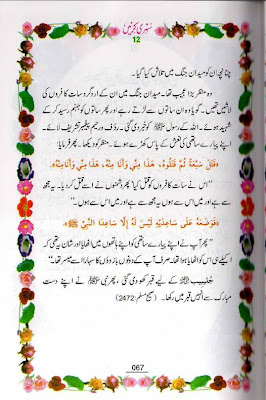 سنہری کرنیں
12
چنانچہ ان کو میدان جنگ میں تلاش کیا گیا۔
وہ منظر بڑا عجیب تھا۔ میدان جنگ میں ان کے ارد گرد سات کافروں کی
لاشیں تھیں۔ گویا وہ ان ساتوں سے لڑتے رہے اور پھر ساتوں کو جہنم رسید کر کے
شہید ہوئے۔ اللہ کے رسول ﷺ کو خبر دی گئی۔ رؤف و رحیم پیغمبر تشریف لائے۔
اپنے پیارے ساتھی کی نعش کے پاس کھڑے ہوئے۔ منظر کو دیکھا۔ پھر فرمایا:
«قَتَلَ سَبْعَةً ثُمَّ قَتَلُوهُ، هَذَا مِنِّي وَأَنَا مِنْهُ، هَذَا مِنِّي وَأَنَا مِنْهُ».
”اس نے سات کافروں کو قتل کیا پھر دشمنوں نے اسے قتل کر دیا۔ یہ مجھ
سے ہے اور میں اس سے ہوں یہ مجھ سے ہے اور میں اس سے ہوں۔“
«فَوَضَعَهُ عَلَى سَاعِدَيْهِ لَيْسَ لَهُ إِلَّا سَاعِدَا النَّبِيِّ ﷺ».
”پھر آپ نے اپنے پیارے ساتھی کو اپنے ہاتھوں میں اٹھایا اور شان یہ تھی کہ
اکیلے ہی اس کو اٹھایا ہوا تھا۔ صرف آپ کے دونوں بازوؤں کا سہارا اسے میسر تھا۔“
جُلیبیب کے لیے قبر کھودی گئی، پھر نبی ﷺ نے اپنے دست
مبارک سے انہیں قبر میں رکھا۔ (صحیح مسلم: 2472)
067